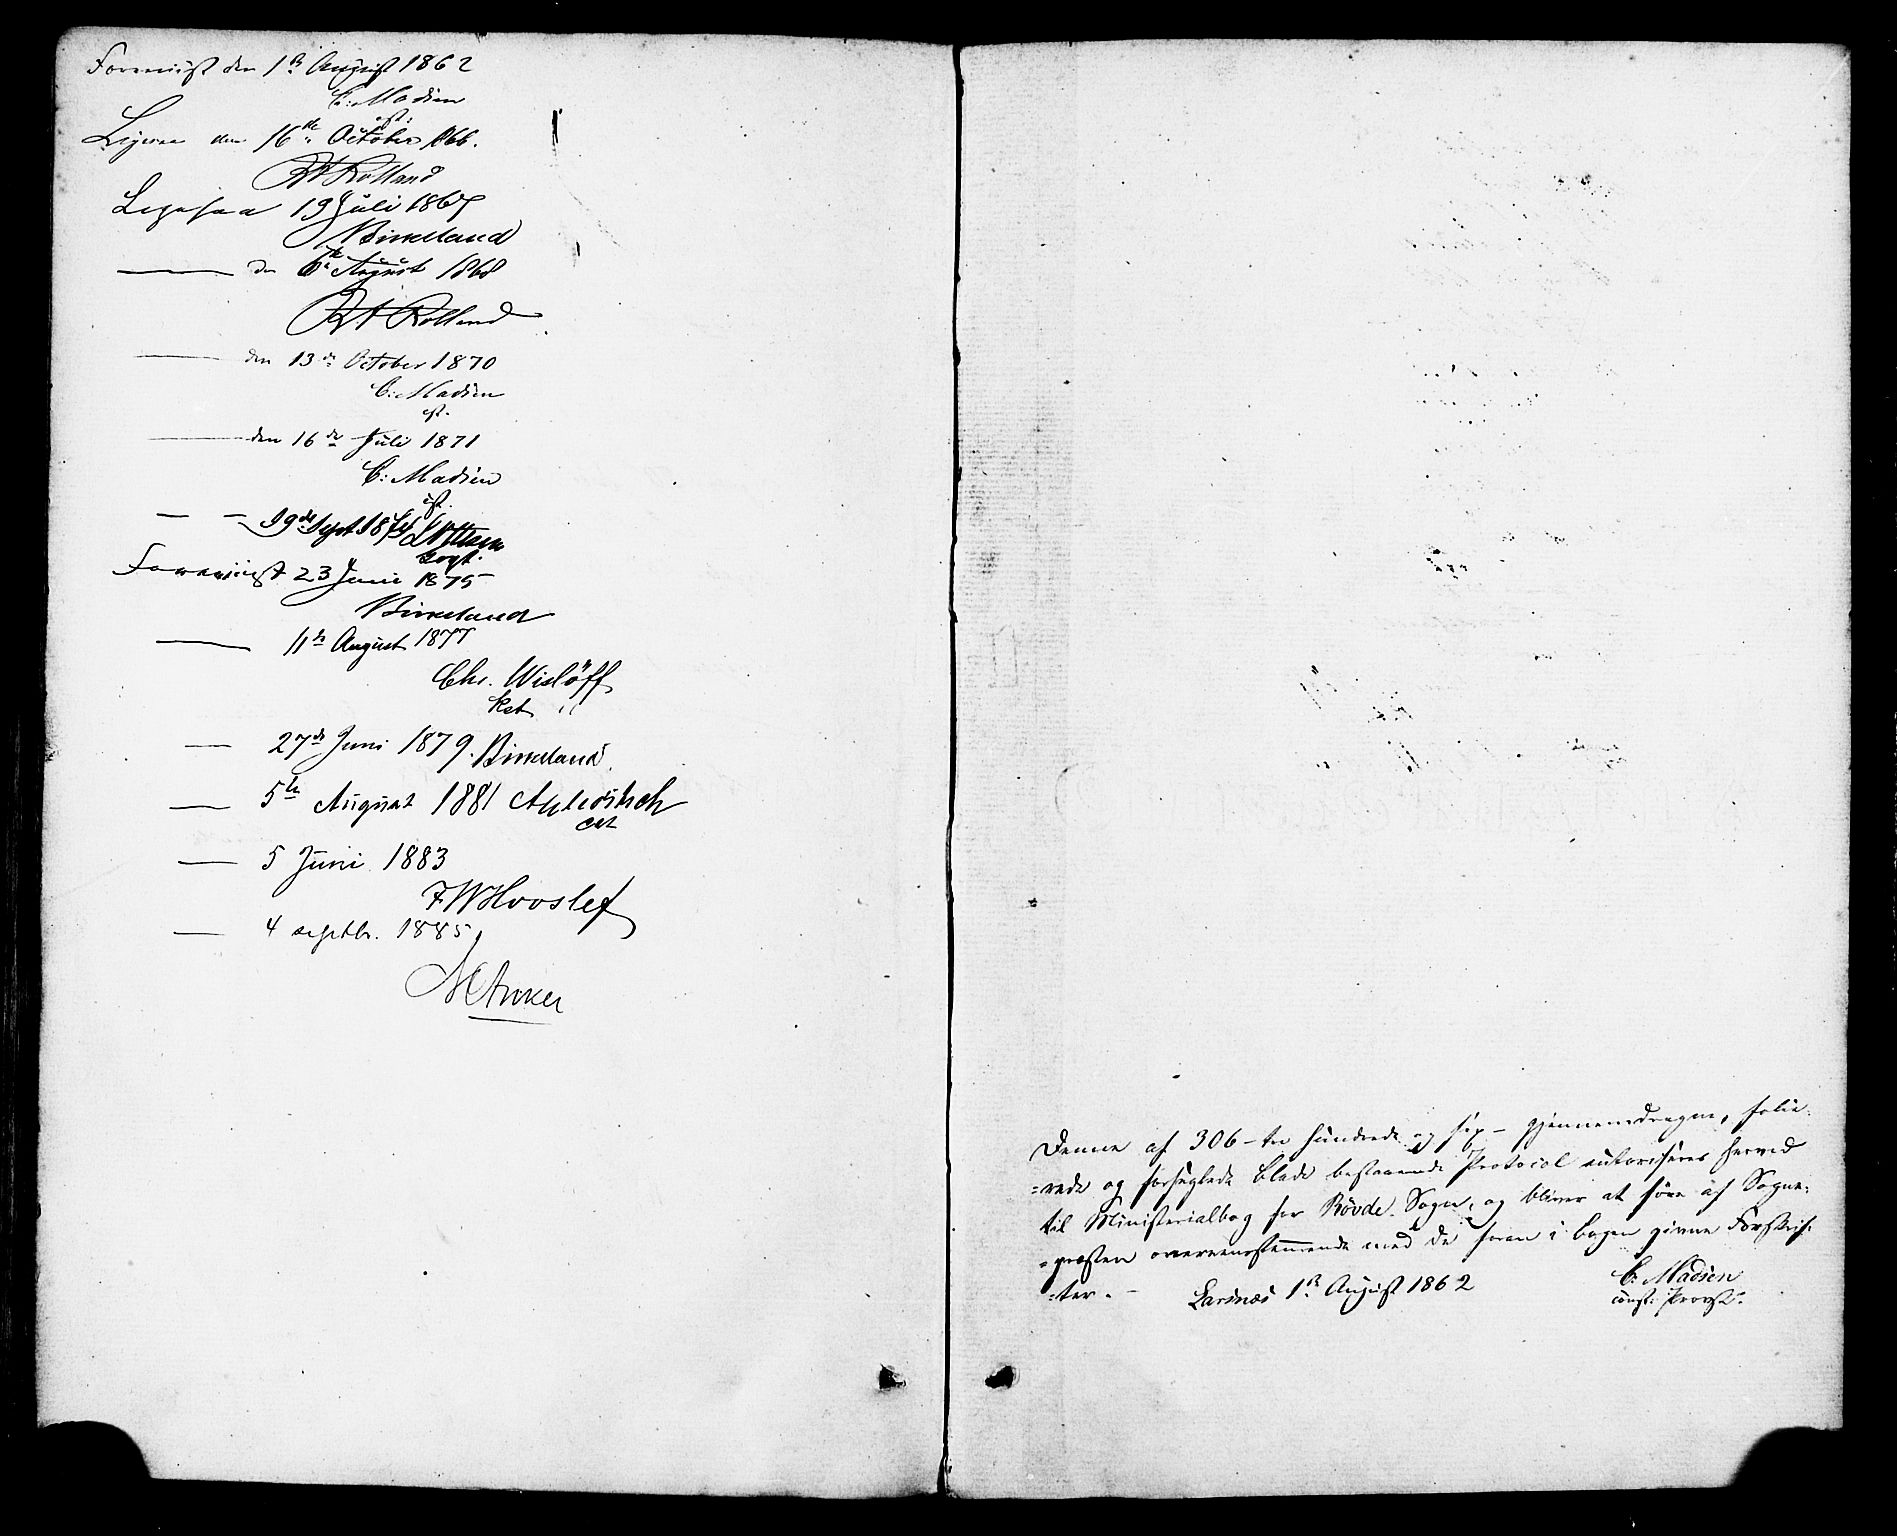 Foreviist den 1ste August 1862
C: Madsen
cst:
Ligesaa den 16de October 1866.
Rolland
Ligesaa 19 Juli 1867
Birkeland
— den 6te August 1868
Rolland
— den 13de October 1870
C: Madsen
cst.
— den 16de Juli 1871
C: Madsen
cst.
— — 19de Sept 187
const.
Foreviist 23 Juni 1875
Birkeland
— 11te August 1877
Chr. Wislöff
kst
— 27de Juni 1879. Birkeland.
— 5te August 1881
cst
— 5 Juni 1883
FWHvoslef
— 4 septbr. 1885
Anker
Denne af 306 – tre hundrede og sex – gjennemdragne, folie-
=rede og forseglede Blade bestaaende Protocol autoriseres herved
til Ministerialbog for Rövde Sogn, og bliver at føre af Sogne-
=præsten overeensstemmende med de foran i Bogen givne Forskrif-
=ter. –
Larsnæs 1ste August 1862
C: Madsen
const: Provst.